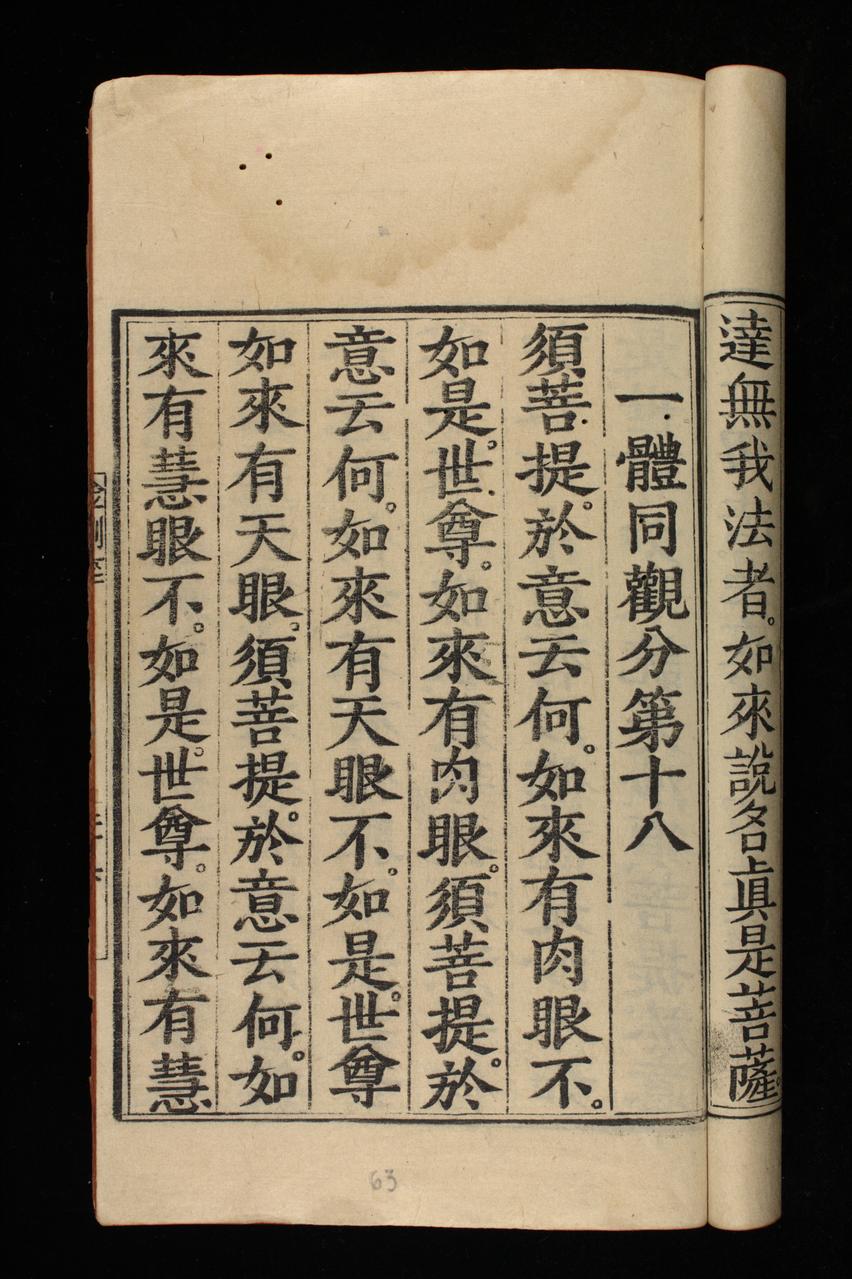 達無我法者。如來說名眞是菩薩。
一體同觀分第十八
須菩提。於意云何。如來有肉眼不。
如是。世尊。如來有肉眼。須菩提。於
意云何。如來有天眼不。如是。世尊
如來有天眼。須菩提。於意云何。如
來有慧眼不。如是。世尊。如來有慧
63